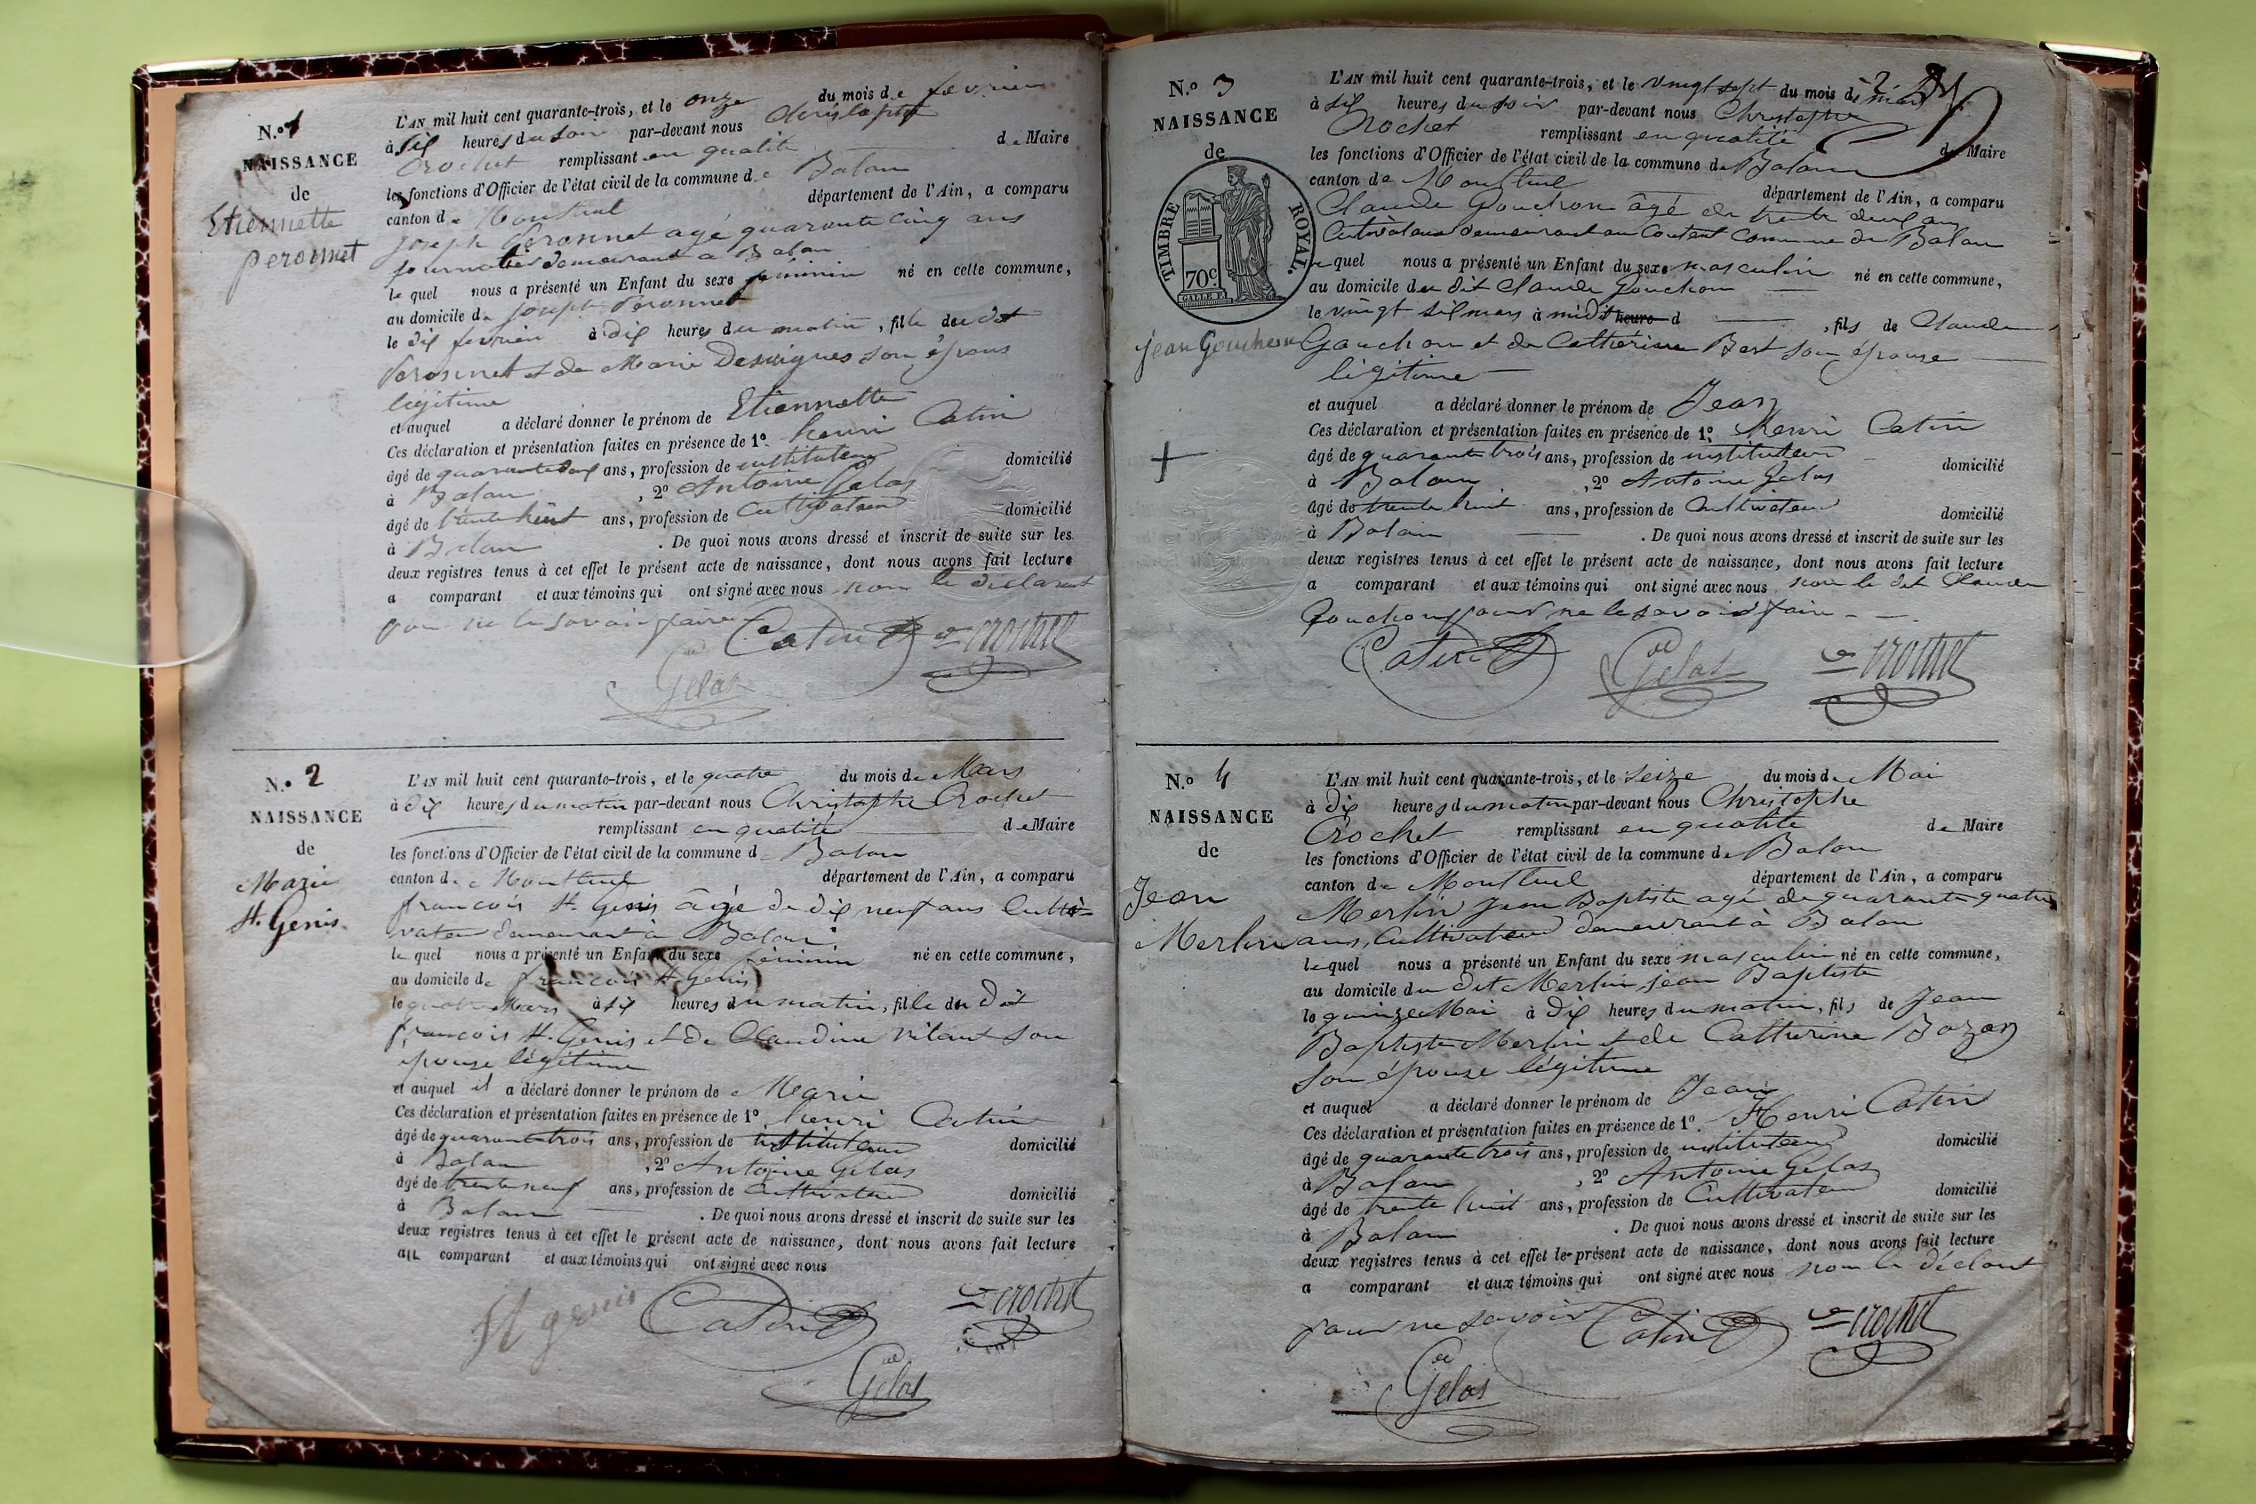 N.º 1
NAISSANCE
de
Etiennette
peronnet
L'AN mil huit cent quarante-trois, et le onze du mois de fevrier
à six heures du soir par-devant nous christophe
Crochet remplissant en qualité de Maire
les fonctions d'Officier de l'état civil de la commune de Balan
canton de Montluel département de l'Ain, a comparu
joseph Peronnet agé quarante cinq ans
journalier demeurant a Balan
le quel nous a présenté un Enfant du sexe féminin né en cette commune,
au domicile de joseph Peronnet
le dix fevrier à dix heures du matin, fille du dit
Peronnet et de Marie son épouse
légitime
et auquel a déclaré donner le prénom de Etiennette
Ces déclaration et présentation faites en présence de 1º henri Catin
âgé de ans, profession de instituteur domicilié
à Balan, 2º Antoine Gelas
âgé de trente huit ans, profession de Cultivateur domicilié
à Balan. De quoi nous avons dressé et inscrit de suite sur les
deux registres tenus à cet effet le présent acte de naissance, dont nous avons fait lecture
a comparant et aux témoins qui ont signé avec nous non le déclarant
pour ne le savoir faire Catin Crochet
Gelas
N.º 2
NAISSANCE
de
Marie
St. Genis.
L'AN mil huit cent quarante-trois, et le quatre du mois de Mars
à dix heures du matin par-devant nous Christophe Crochet
remplissant en qualité de Maire
les fonctions d'Officier de l'état civil de la commune de Balan
canton de Montluel département de l'Ain, a comparu
francois St. Genis âgé de dix neuf ans Culti-
vateur demeurant à Balan
le quel nous a présenté un Enfant du sexe féminin né en cette commune,
au domicile de francois St. Genis
le quatre Mars à six heures du matin, fille du dit
françois St. Genis et de Claudine Vilant son
épouse légitime
et auquel il a déclaré donner le prénom de Marie
Ces déclaration et présentation faites en présence de 1º henri Catin
âgé de quarante trois ans, profession de instituteur domicilié
à Balan, 2º Antoine Gelas
âgé de trente neuf ans, profession de Cultivateur domicilié
à Balan. De quoi nous avons dressé et inscrit de suite sur les
deux registres tenus à cet effet le présent acte de naissance, dont nous avons fait lecture
au comparant et aux témoins qui ont signé avec nous
St genis Catin Crochet
Gelas
N.º 3
NAISSANCE
de
TIMBRE ROYAL.
70c
jean Gouchon
L'AN mil huit cent quarante-trois, et le vingt sept du mois de mars
à six heures du soir par-devant nous Christophe
Crochet remplissant en qualité de Maire
les fonctions d'Officier de l'état civil de la commune de Balan
canton de Montluel département de l'Ain, a comparu
Claude Gouchon âgé de trente deux ans
Cultivateur demeurant au Content Commune de Balan
le quel nous a présenté un Enfant du sexe masculin né en cette commune,
au domicile du dit Claude Gouchon
le vingt six mars à midi heure d, fils de Claude
Gouchon et de Catherine Bert son épouse
légitime
et auquel a déclaré donner le prénom de Jean
Ces déclaration et présentation faites en présence de 1º Henri Catin
âgé de quarante trois ans, profession de instituteur domicilié
à Balan, 2º Antoine Gelas
âgé de trente huit ans, profession de Cultivateur domicilié
à Balan. De quoi nous avons dressé et inscrit de suite sur les
deux registres tenus à cet effet le présent acte de naissance, dont nous avons fait lecture
a comparant et aux témoins qui ont signé avec nous non le dit Claude
Gouchon pour ne le savoir faire
Catin Gelas Crochet
N.º 4
NAISSANCE
de
Jean
Merlin
L'AN mil huit cent quarante-trois, et le seize du mois de Mai
à dix heures du matin par-devant nous Christophe
Crochet remplissant en qualité de Maire
les fonctions d'Officier de l'état civil de la commune de Balan
canton de Montluel département de l'Ain, a comparu
Merlin Jean Baptiste agé de quarante quatre
ans, Cultivateur demeurant à Balan
le quel nous a présenté un Enfant du sexe masculin né en cette commune,
au domicile du dit Merlin jean Baptiste
le quinze Mai à dix heures du matin, fils de Jean
Baptiste Merlin et de Catherine Bozon
son épouse légitime
et auquel a déclaré donner le prénom de Jean
Ces déclaration et présentation faites en présence de 1º Henri Catin
âgé de quarante trois ans, profession de instituteur domicilié
à Balan, 2º Antoine Gelas
âgé de trente huit ans, profession de Cultivateur domicilié
à Balan. De quoi nous avons dressé et inscrit de suite sur les
deux registres tenus à cet effet le présent acte de naissance, dont nous avons fait lecture
a comparant et aux témoins qui ont signé avec nous non le déclant
pour ne savoir Catin Crochet
Gelas